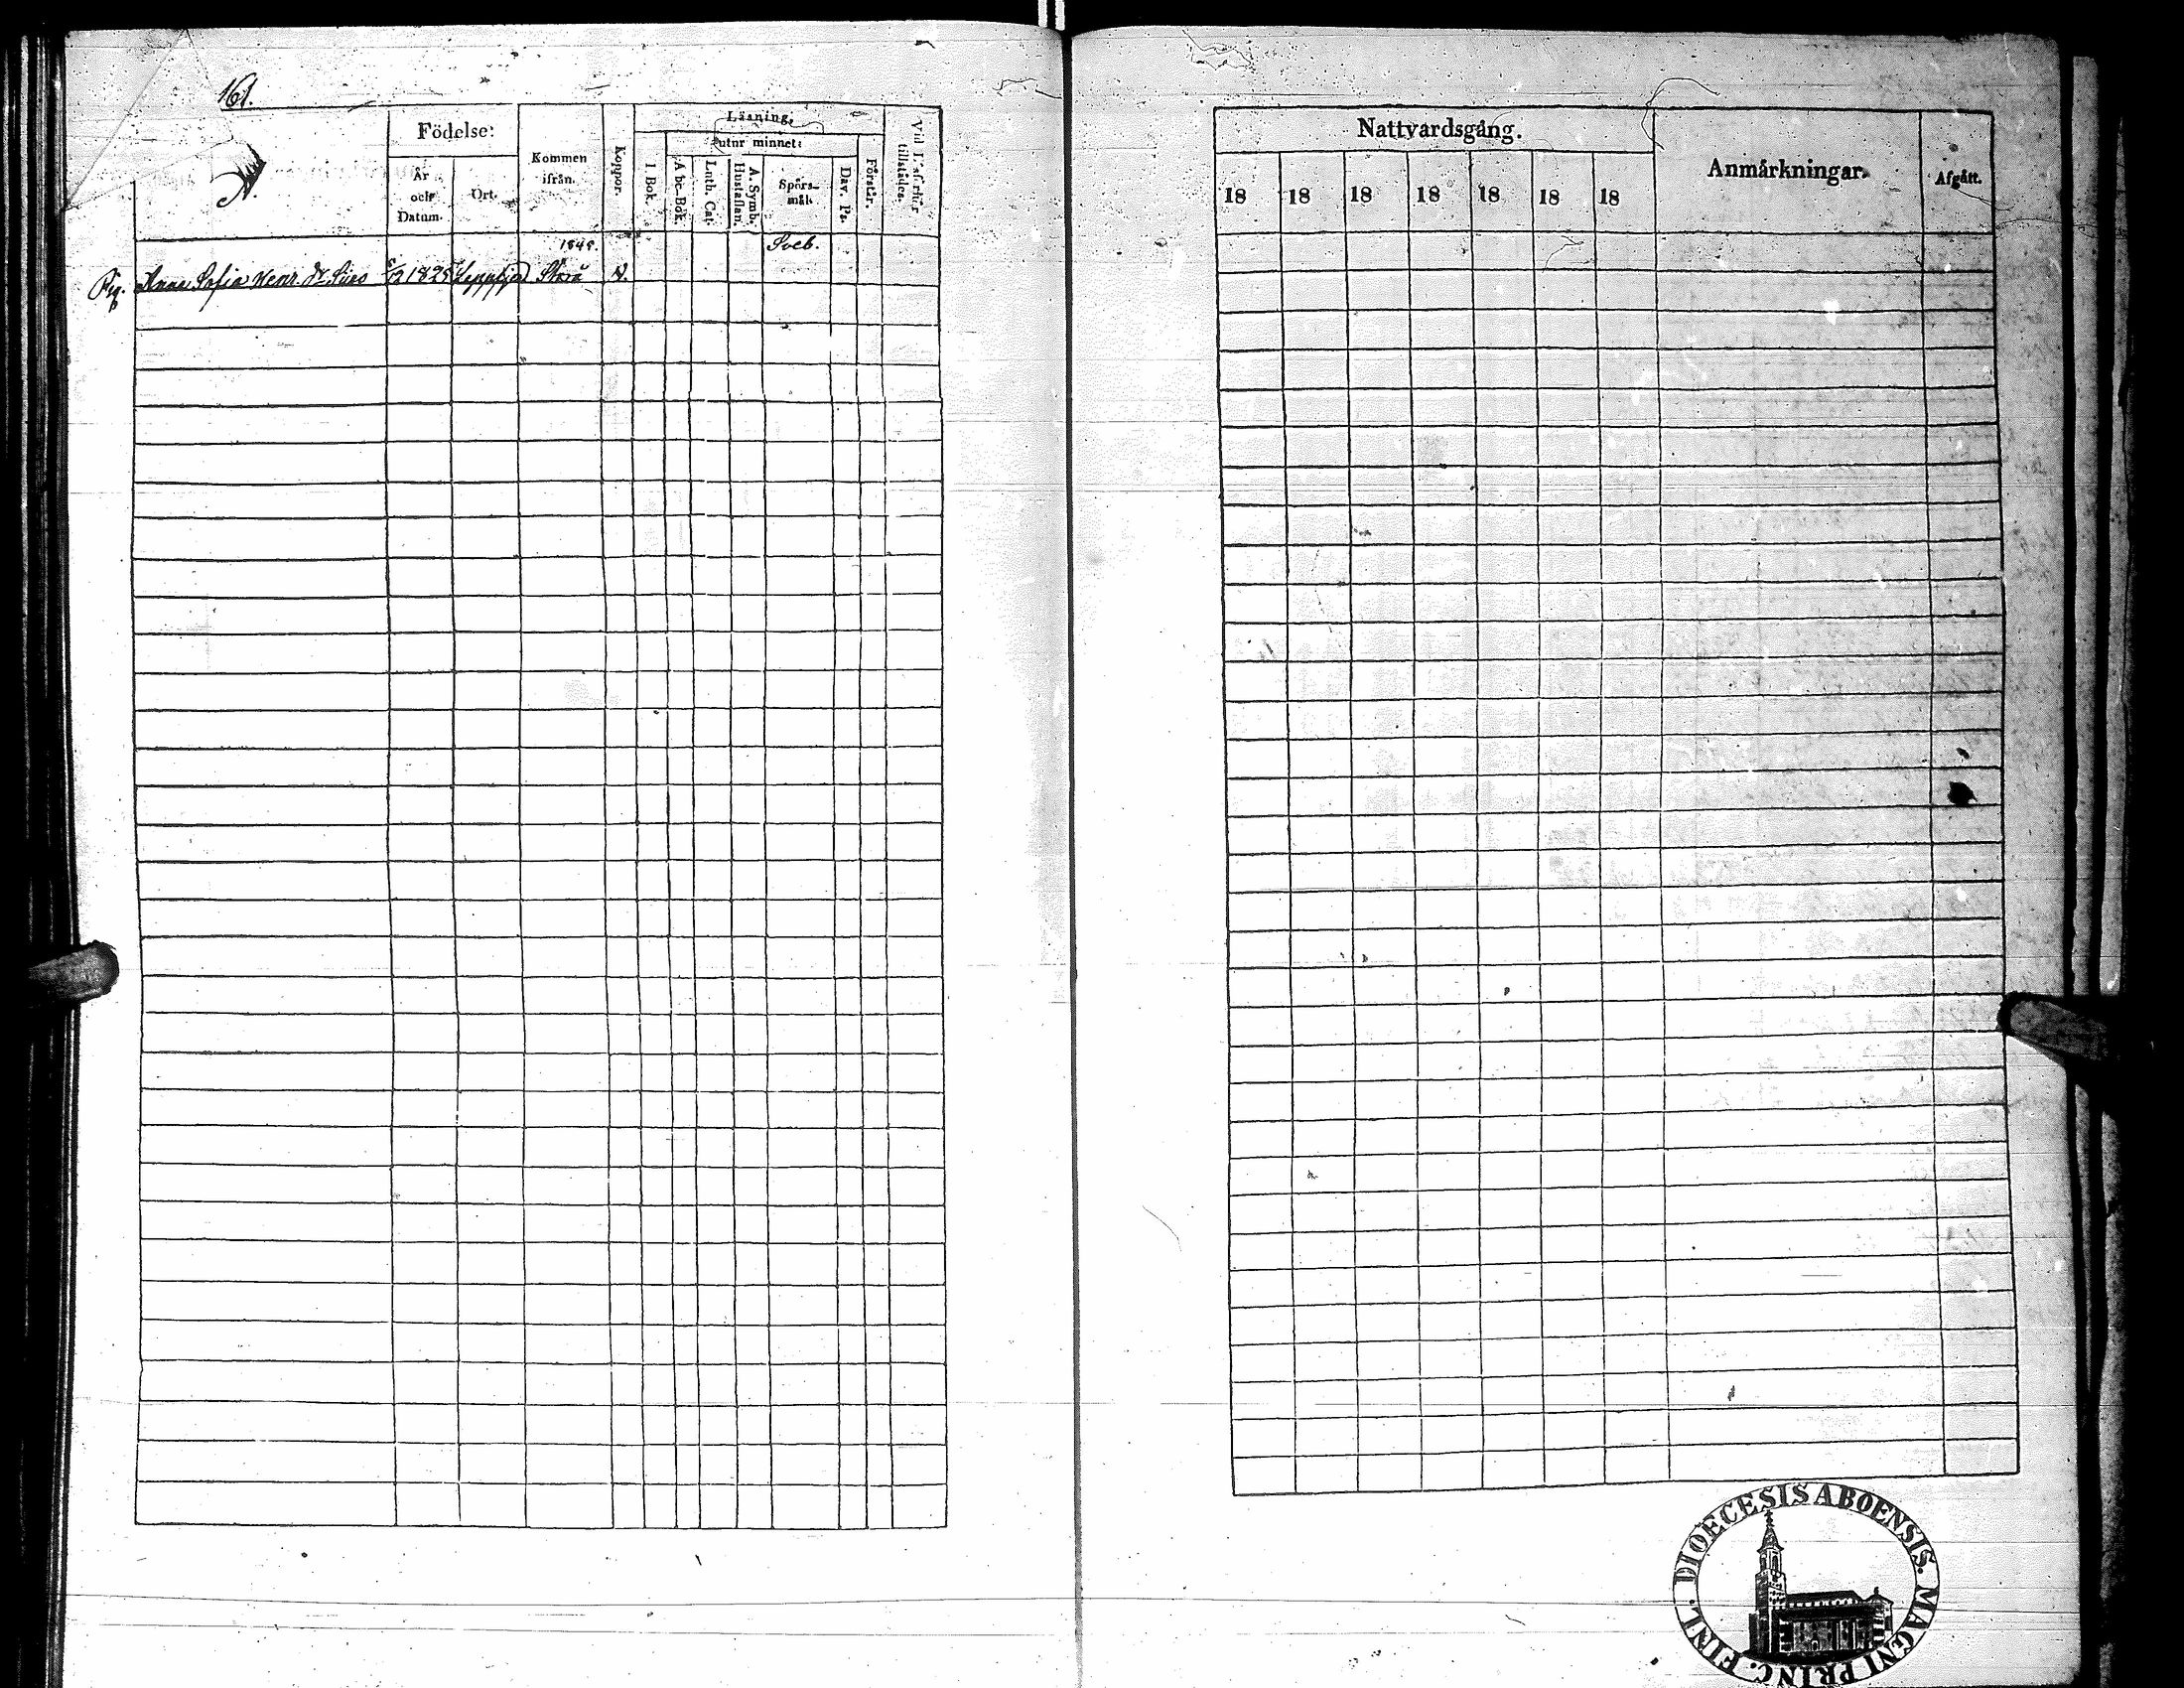 161.
N.
Födelse:
År
och
Datum.
Ort.
Kommen
ifrån.
Koppor.
Läsning.
utur minnet:
I Bok.
A bc-Bok.
Luth. Cat.
A. Symb.
Hustaflan.
Spörs-
mål.
Dav. Ps.
Förstår.
Vid Läsförhör
tillstädes.
1848.
Sveb.
Pig. Anna Sofia Henr. dr 1825 N.
Nattvardsgång.
18 18 18 18 18 18 18
Anmärkningar.
Afgått.
DIOECESIS ABOENSIS. MAGNI PRINC. FINL.